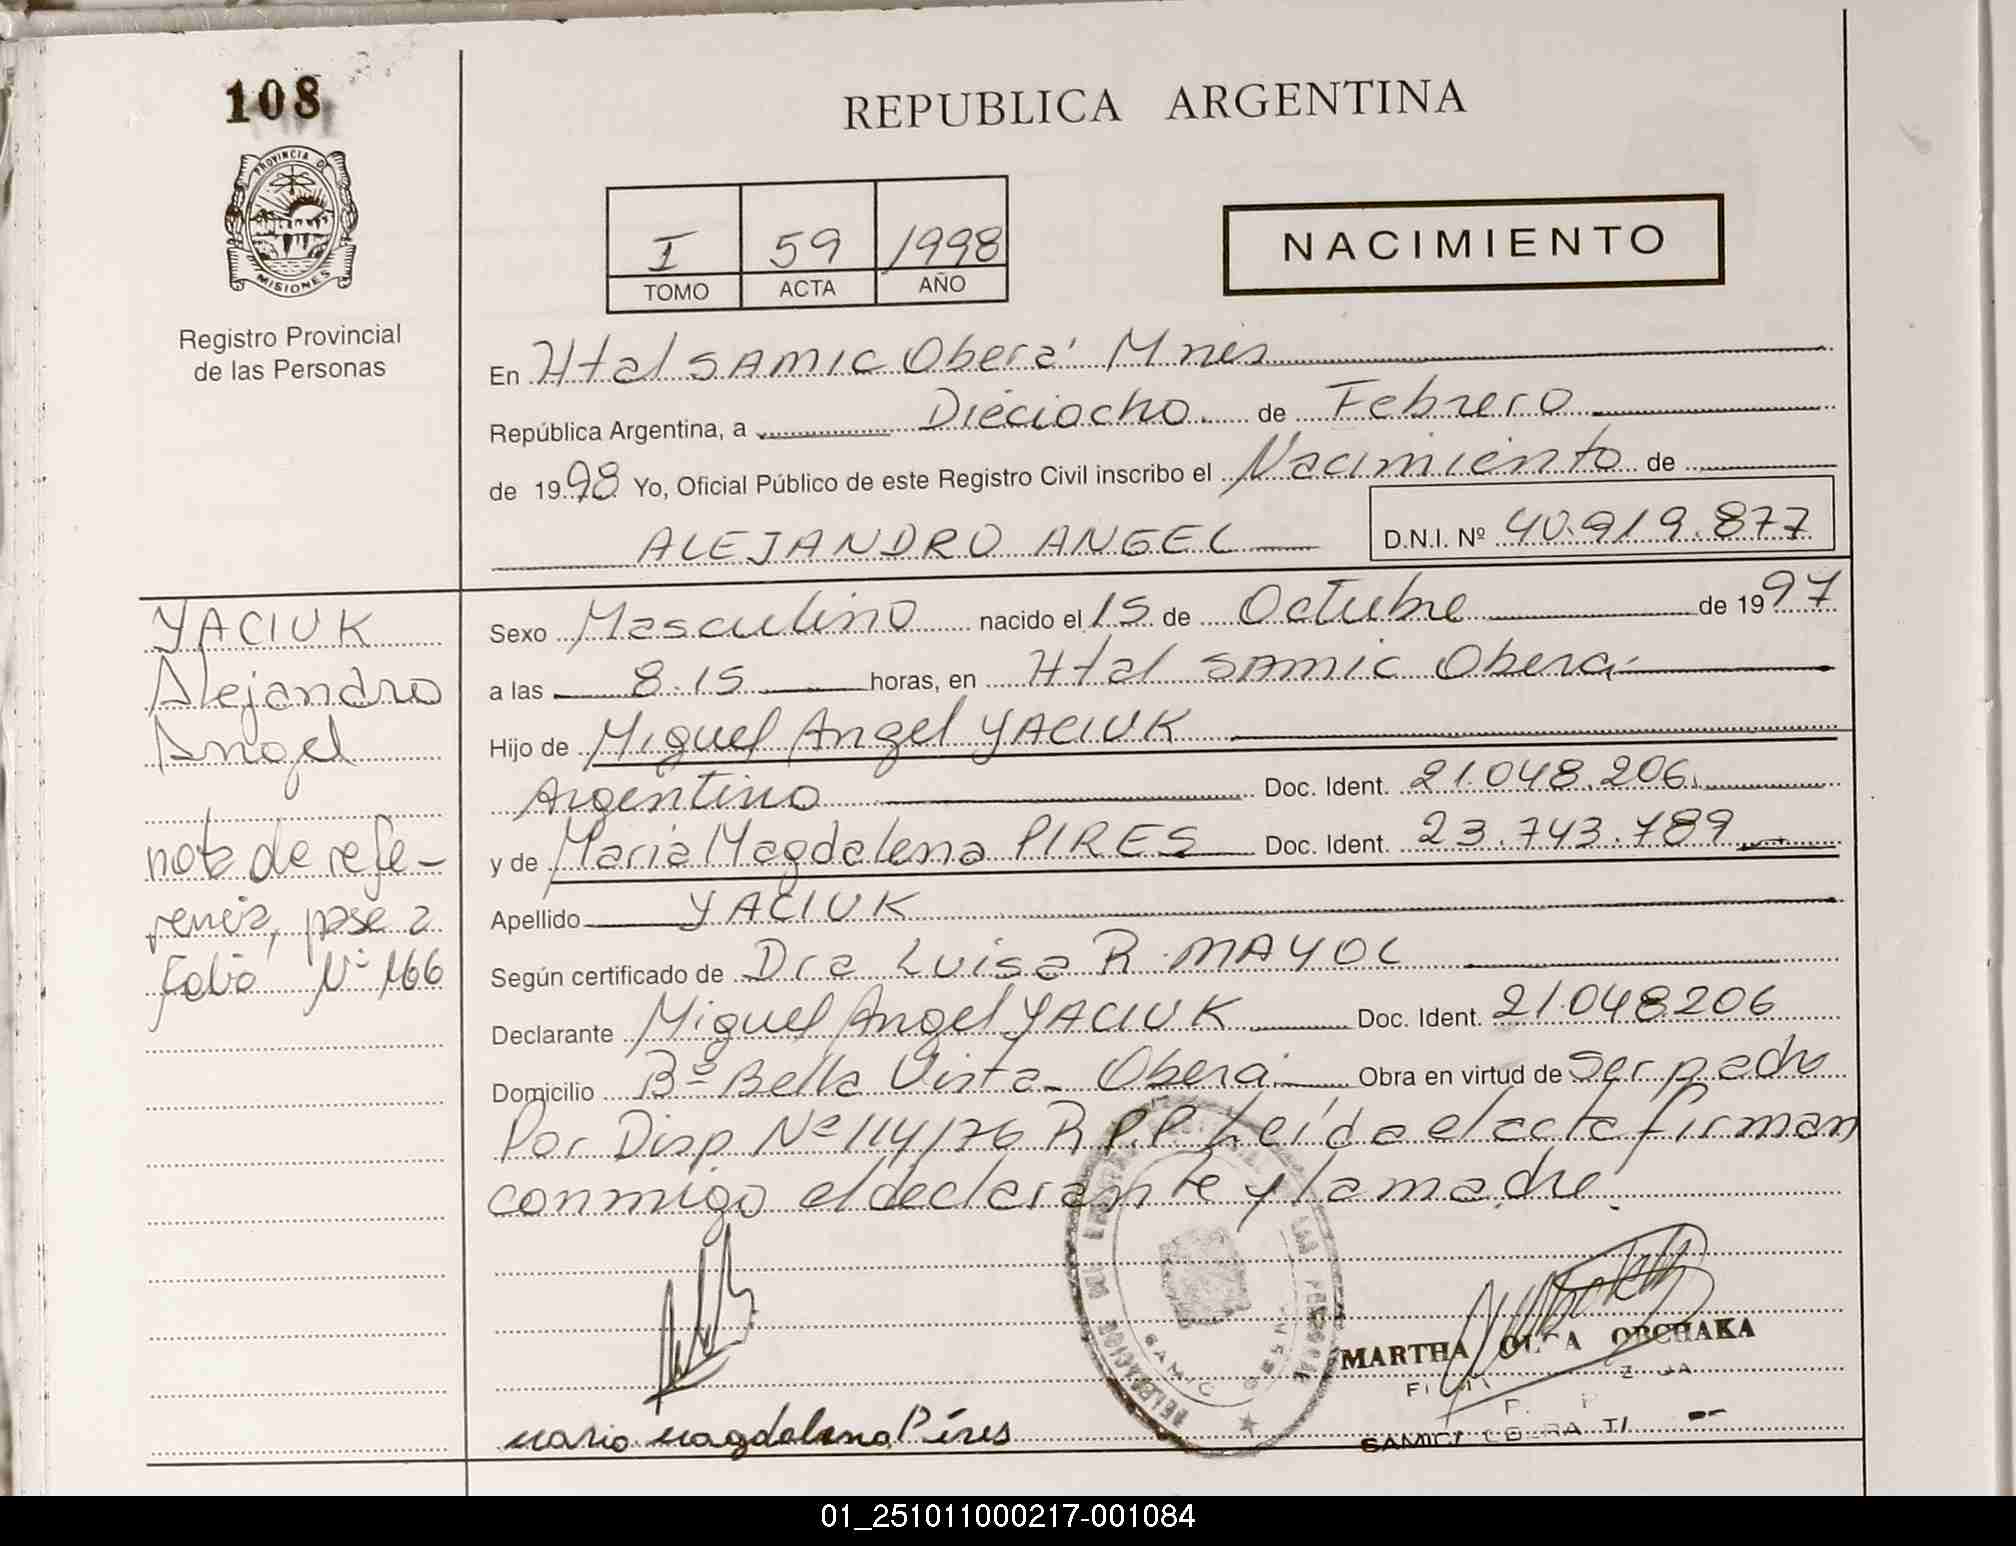 108
PROVINCIA DE
MISIONES
Registro Provincial
de las Personas
REPUBLICA ARGENTINA
I 59 1998
TOMO ACTA AÑO
NACIMIENTO
En Htal SAMIC Oberá Mnes
República Argentina, a Dieciocho de Febrero
de 1998 Yo, Oficial Público de este Registro Civil inscribo el Nacimiento de
ALEJANDRO ANGEL D.N.I. Nº 40.919.877
YACIUK
Alejandro
Angel
nota de refe-
rencia, pase a
Folio Nº 166
Sexo Masculino nacido el 15 de Octubre de 1997
a las 8.15 horas, en Htal SAMIC Oberá
Hijo de Miguel Angel YACIUK
Argentino Doc. Ident. 21.048.206
y de Maria Magdalena PIRES Doc. Ident. 23.743.789
Apellido YACIUK
Según certificado de Dra Luisa R. MAYOL
Declarante Miguel Angel YACIUK Doc. Ident. 21.048206
Domicilio Bº Bella Vista - Oberá Obra en virtud de ser padre
Por Disp. Nº 114/76 R.P.P Leída el acta firman
conmigo el declarante y la madre
maria magdalena Píres
MARTHA OLGA ORCHAKA
01_251011000217-001084